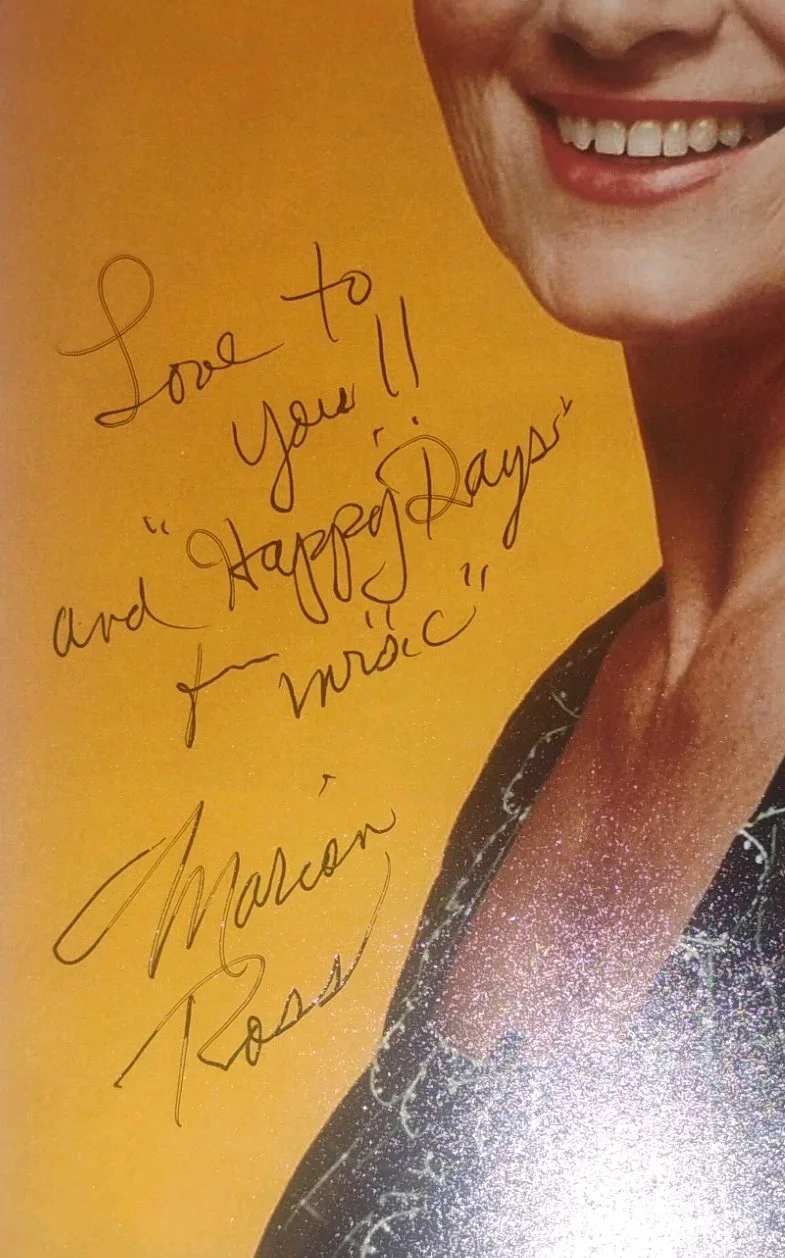 Love to
you!!
and "Happy Days"
from Mrs "C"
Marion
Ross